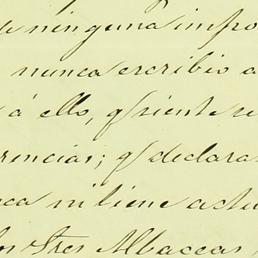 e ninguna impo
nunca escribio a
á ello, q/ siente se
rencias; q/ declara
ca ni tiene actu
los tres Albaceas